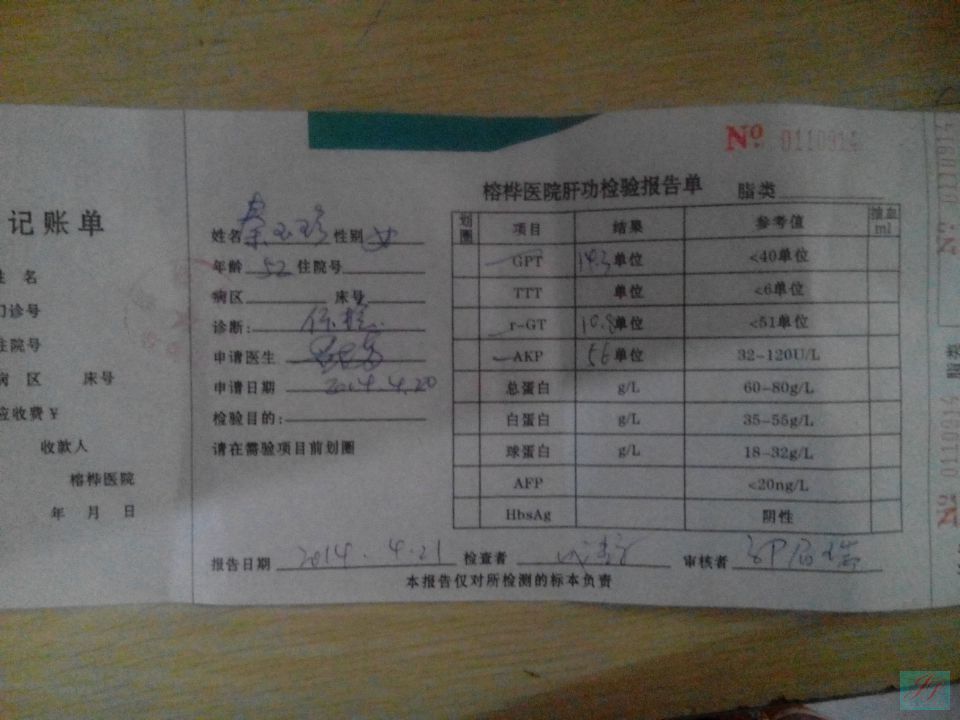 № 0110914
榕桦医院肝功检验报告单 脂类
记账单
姓名
门诊号
住院号
病 区 床号
应收费¥
收款人
榕桦医院
年 月 日
姓名 秦玉珍 性别 女
年龄 52 住院号
病区 床号
诊断:
申请医生
申请日期 2014.4.20
检验目的:
请在需验项目前划圈
划圈 项目 结果 参考值 抽血ml
GPT 14.3单位 <40单位
TTT 单位 <6单位
r-GT 10.8单位 <51单位
AKP 56单位 32-120U/L
总蛋白 g/L 60-80g/L
白蛋白 g/L 35-55g/L
球蛋白 g/L 18-32g/L
AFP <20ng/L
HbsAg 阴性
报告日期 2014.4.21 检查者 审核者
本报告仅对所检测的标本负责
№ 0110914
脂类
№ 0110914